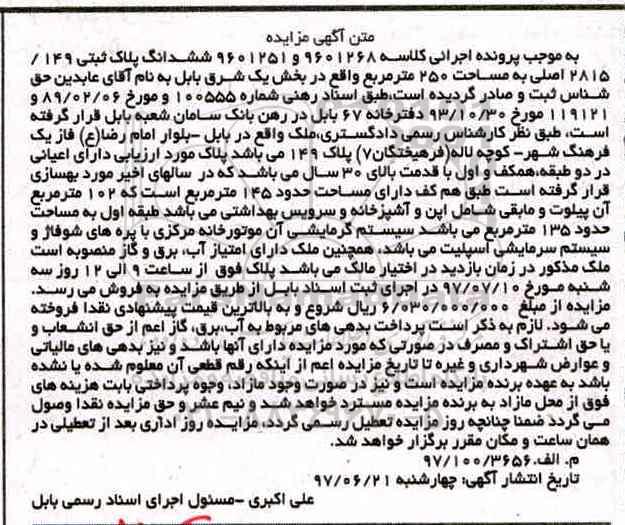 متن آگهی مزایده
به موجب پرونده اجرائی کلاسه ۹۶۰۱۲۶۸ و ۹۶۰۱۲۵۱ ششدانگ پلاک ثبتی ۱۴۹ /
۲۸۱۵ اصلی به مساحت ۲۵۰ مترمربع واقع در بخش یک شرق بابل به نام آقای عابدین حق
شناس ثبت و صادر گردیده است،طبق اسناد رهنی شماره ۱۰۰۵۵۵ و مورخ ۸۹/۰۲/۰۶ و
۱۱۹۱۲۱ مورخ ۹۳/۱۰/۳۰ دفترخانه ۶۷ بابل در رهن بانک سامان شعبه بابل قرار گرفته
است، طبق نظر کارشناس رسمی دادگستری،ملک واقع در بابل -بلوار امام رضا(ع) فاز یک
فرهنگ شهر- کوچه لاله(فرهیختگان۷) پلاک ۱۴۹ می باشد پلاک مورد ارزیابی دارای اعیانی
در دو طبقه،همکف و اول با قدمت بالای ۳۰ سال می باشد که در سالهای اخیر مورد بهسازی
قرار گرفته است طبق هم کف دارای مساحت حدود ۱۴۵ مترمربع است که ۱۰۲ مترمربع
آن پیلوت و مابقی شامل اپن و آشپزخانه و سرویس بهداشتی می باشد طبقه اول به مساحت
حدود ۱۳۵ مترمربع می باشد سیستم گرمایشی آن موتورخانه مرکزی با پره های شوفاژ و
سیستم سرمایشی اسپلیت می باشد، همچنین ملک دارای امتیاز آب، برق و گاز منصوبه است
ملک مذکور در زمان بازدید در اختیار مالک می باشد پلاک فوق از ساعت ۹ الی ۱۲ روز سه
شنبه مورخ ۹۷/۰۷/۱۰ در اجرای ثبت اسناد بابل از طریق مزایده به فروش می رسد.
مزایده از مبلغ ۶/۰۳۰/۰۰۰/۰۰۰ ریال شروع و به بالاترین قیمت پیشنهادی نقدا فروخته
می شود. لازم به ذکر است پرداخت بدهی های مربوط به آب،برق، گاز اعم از حق انشعاب و
یا حق اشتراک و مصرف در صورتی که مورد مزایده دارای آنها باشد و نیز بدهی های مالیاتی
و عوارض شهرداری و غیره تا تاریخ مزایده اعم از اینکه رقم قطعی آن معلوم شده یا نشده
باشد به عهده برنده مزایده است و نیز در صورت وجود مازاد، وجوه پرداختی بابت هزینه های
فوق از محل مازاد به برنده مزایده مسترد خواهد شد و نیم عشر و حق مزایده نقدا وصول
می گردد ضمنا چنانچه روز مزایده تعطیل رسمی گردد، مزایده روز اداری بعد از تعطیلی در
همان ساعت و مکان مقرر برگزار خواهد شد.
م. الف.۹۷/۱۰۰/۳۶۵۶
تاریخ انتشار آگهی: چهارشنبه ۹۷/۰۶/۲۱
علی اکبری -مسئول اجرای اسناد رسمی بابل